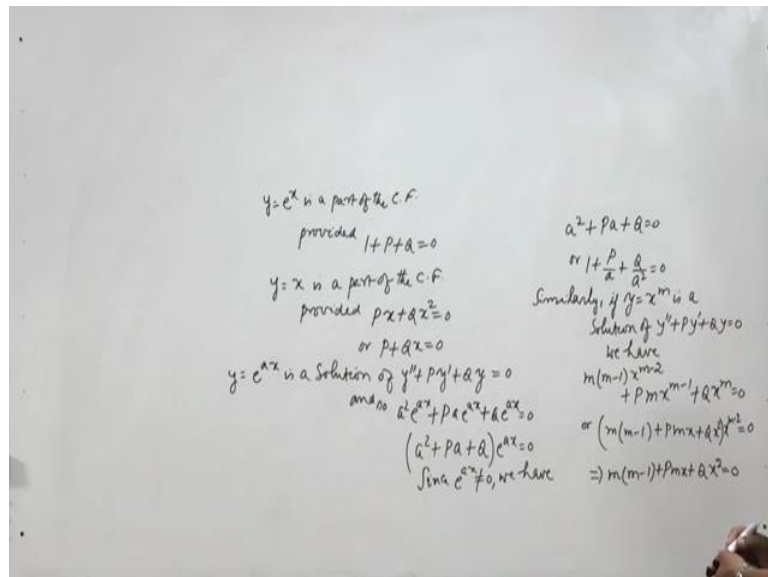 y = e^x is a part of the C.F.
provided 1 + P + Q = 0
y = x is a part of the C.F.
provided Px + Qx^2 = 0
or P + Qx = 0
y = e^{ax} is a Solution of y'' + Py' + Qy = 0
and so a^2 e^{ax} + Pa e^{ax} + Q e^{ax} = 0
(a^2 + Pa + Q) e^{ax} = 0
Since e^{ax} ≠ 0, we have
a^2 + Pa + Q = 0
or 1 + P/a + Q/a^2 = 0
Similarly, if y = x^m is a
Solution of y'' + Py' + Qy = 0
we have
m(m-1)x^{m-2}
+ Pmx^{m-1} + Qx^m = 0
or (m(m-1) + Pmx + Qx^2)x^{m-2} = 0
=> m(m-1) + Pmx + Qx^2 = 0